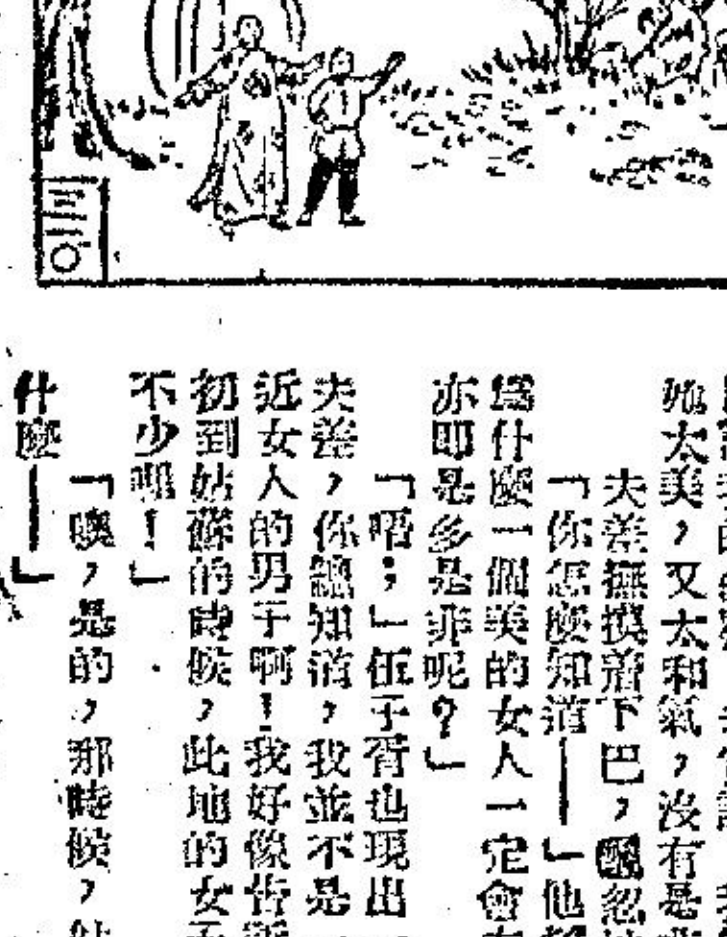 三三〇
她太美，又太和氣，沒有是
夫差撫摸着下巴，
「你怎麼知道——」他
爲什麼一個美的女人一定會
亦即是多是非呢？」
「唔；」伍子胥也現出
夫差，你總知道，我並不是
近女人的男子啊！我好像告訴
初到姑蘇的時候，此地的女
不少哩！」
「噢，是的，那時候，
什麼——」